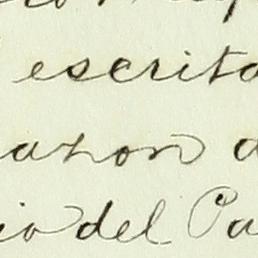 escrita
ahon a
io del Pa